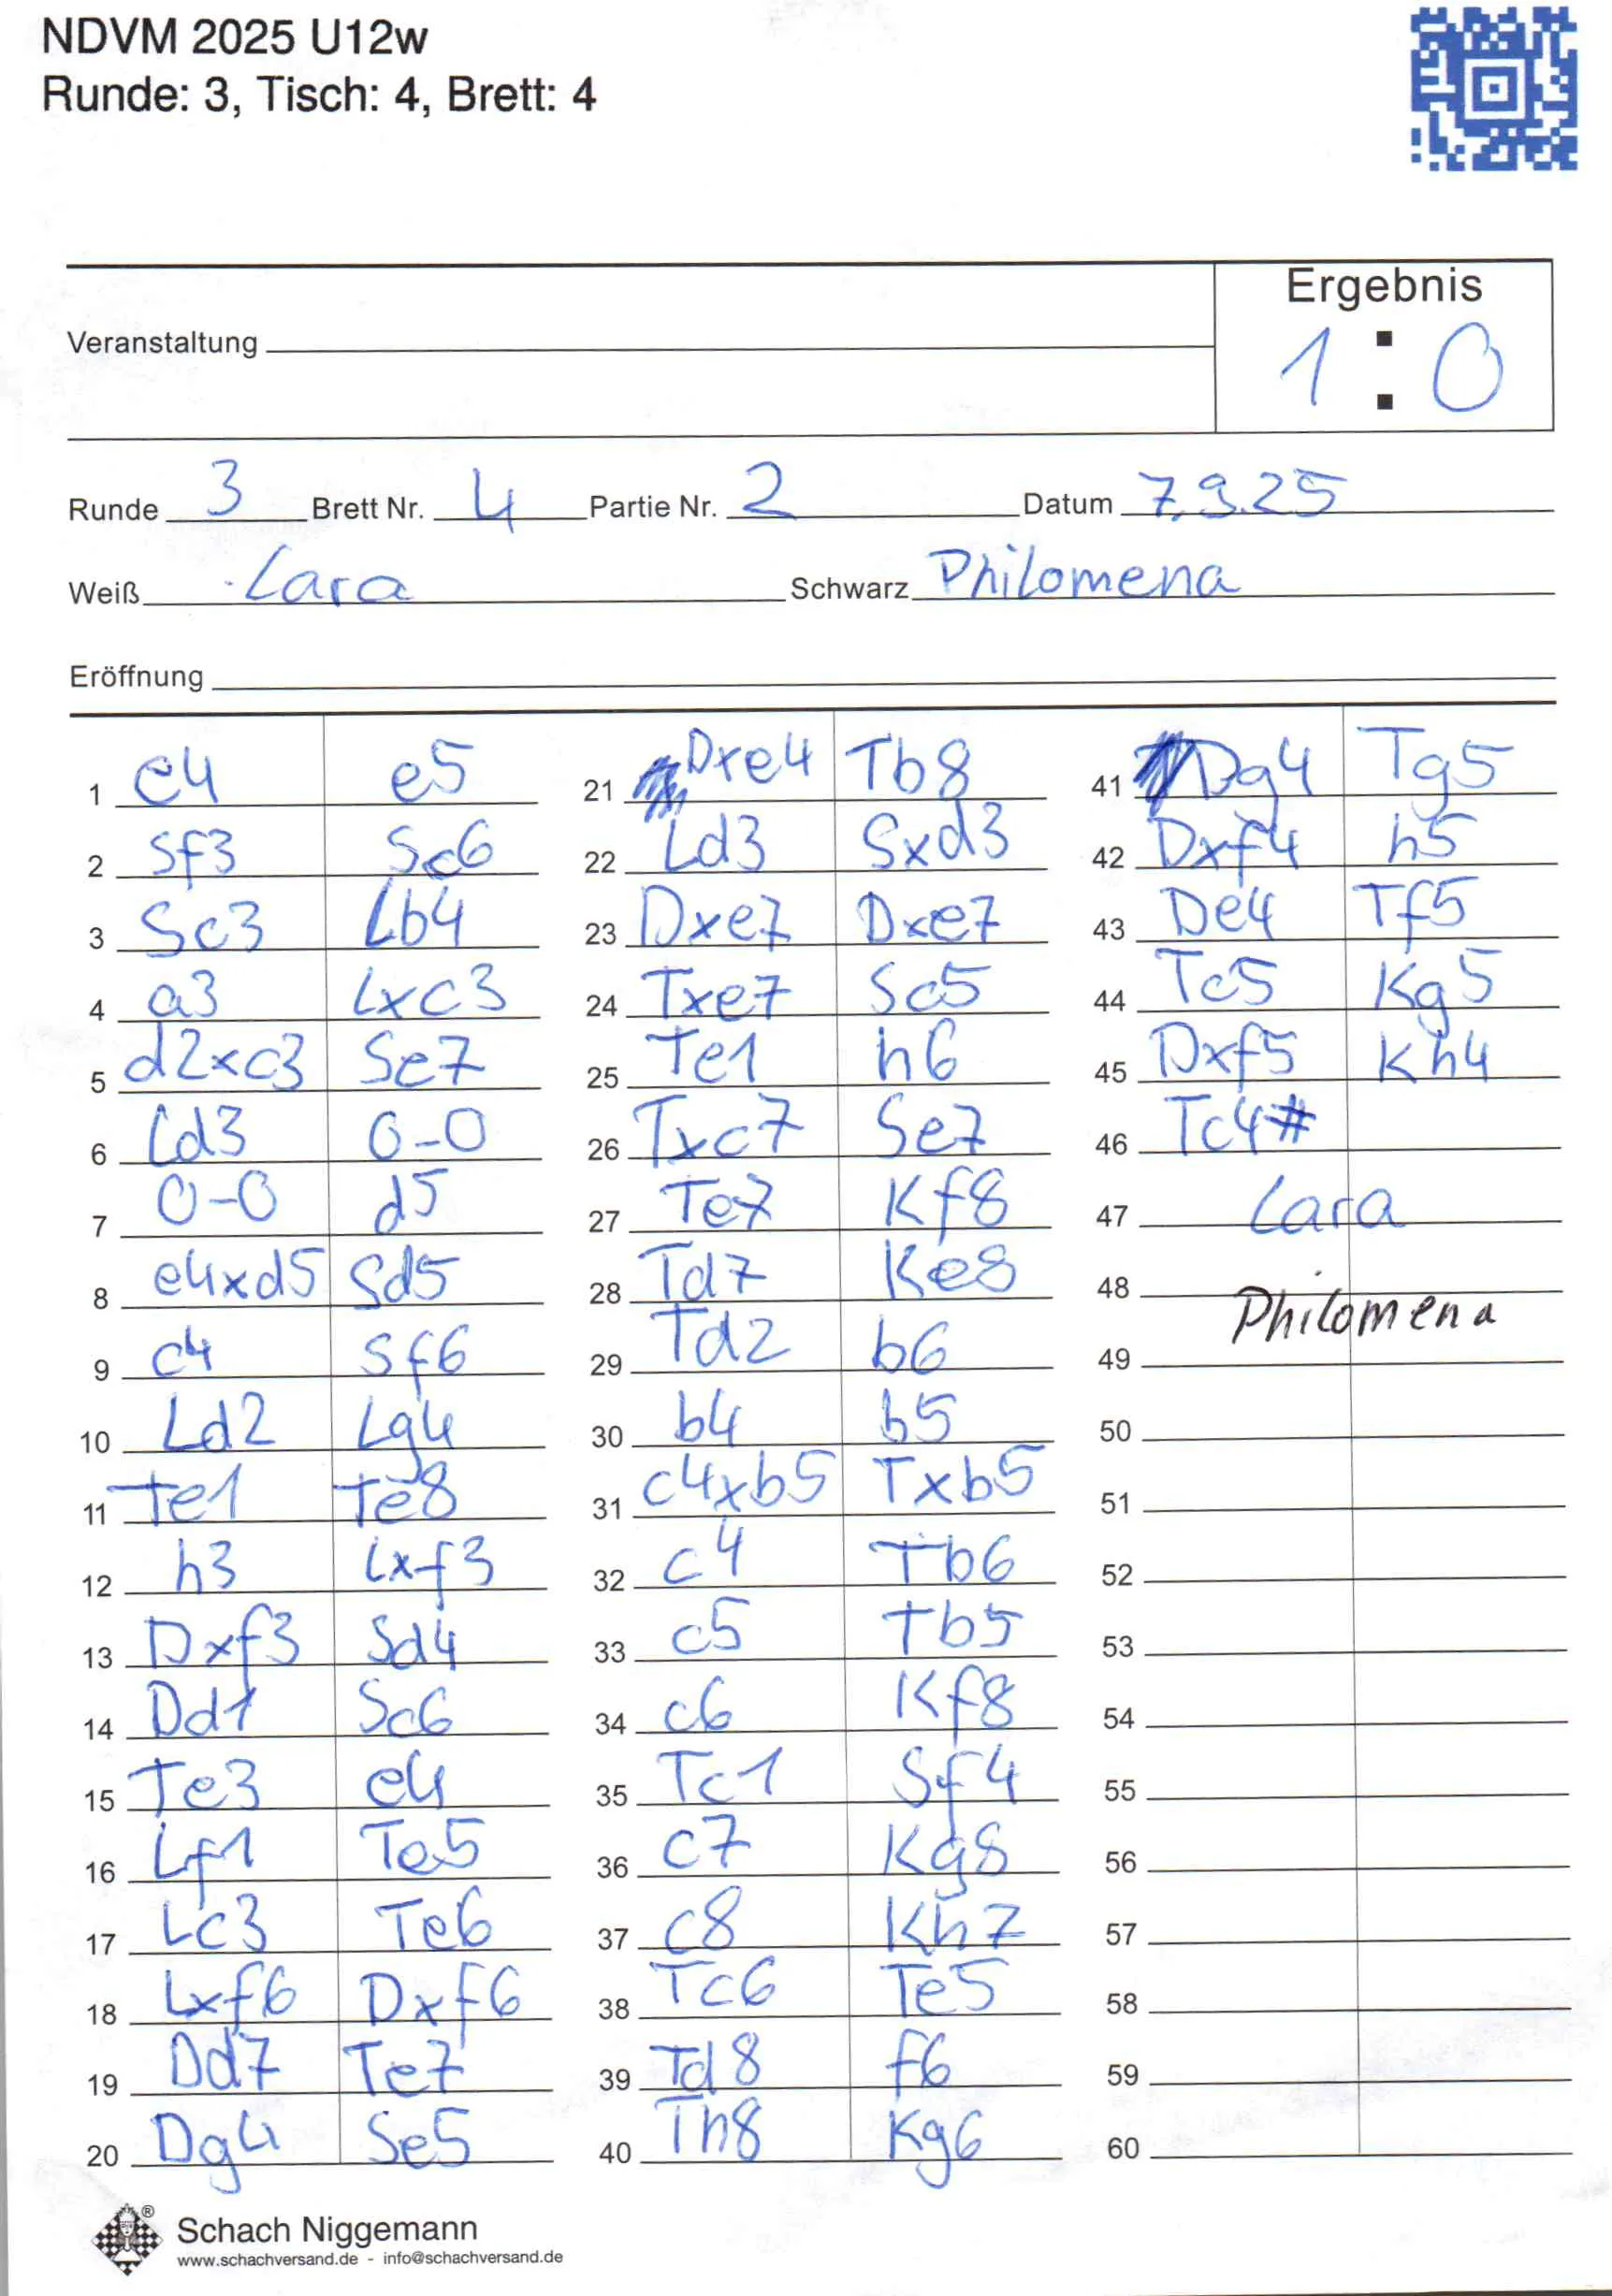 NDVM 2025 U12w
Runde: 3, Tisch: 4, Brett: 4
Ergebnis
Veranstaltung
1 : 0
Runde 3 Brett Nr. 4 Partie Nr. 2 Datum 7.9.25
Weiß Lara Schwarz Philomena
Eröffnung
1 e4 e5
2 Sf3 Sc6
3 Sc3 Lb4
4 a3 Lxc3
5 d2xc3 Se7
6 Ld3 0-0
7 0-0 d5
8 e4xd5 Sd5
9 c4 Sf6
10 Ld2 Lg4
11 Te1 Te8
12 h3 Lxf3
13 Dxf3 Sd4
14 Dd1 Sc6
15 Te3 e4
16 Lf1 Te5
17 Lc3 Te6
18 Lxf6 Dxf6
19 Dd7 Te7
20 Dg4 Se5
21 Dxe4 Tb8
22 Ld3 Sxd3
23 Dxe7 Dxe7
24 Txe7 Sc5
25 Te1 h6
26 Txc7 Se7
27 Te7 Kf8
28 Td7 Ke8
29 Td2 b6
30 b4 b5
31 c4xb5 Txb5
32 c4 Tb6
33 c5 Tb5
34 c6 Kf8
35 Tc1 Sf4
36 c7 Kg8
37 c8 Kh7
38 Tc6 Te5
39 Td8 f6
40 Th8 Kg6
41 Dg4 Tg5
42 Dxf4 h5
43 De4 Tf5
44 Tc5 Kg5
45 Dxf5 Kh4
46 Tc4#
47 Lara
48
Philomena
49
50
51
52
53
54
55
56
57
58
59
60
Schach Niggemann
www.schachversand.de - info@schachversand.de